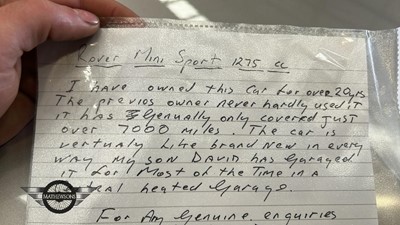 Rover Mini Sport 1275 cc
I have owned this Car for over 20yrs
The previos owner never hardly used it
it has genually only covered just
over 7000 miles. The car is
vertualy like brand new in every
way my son David has garaged
it for most of the time in a
heated Garage.
For Any Genuine enquiries
MATHEWSONS